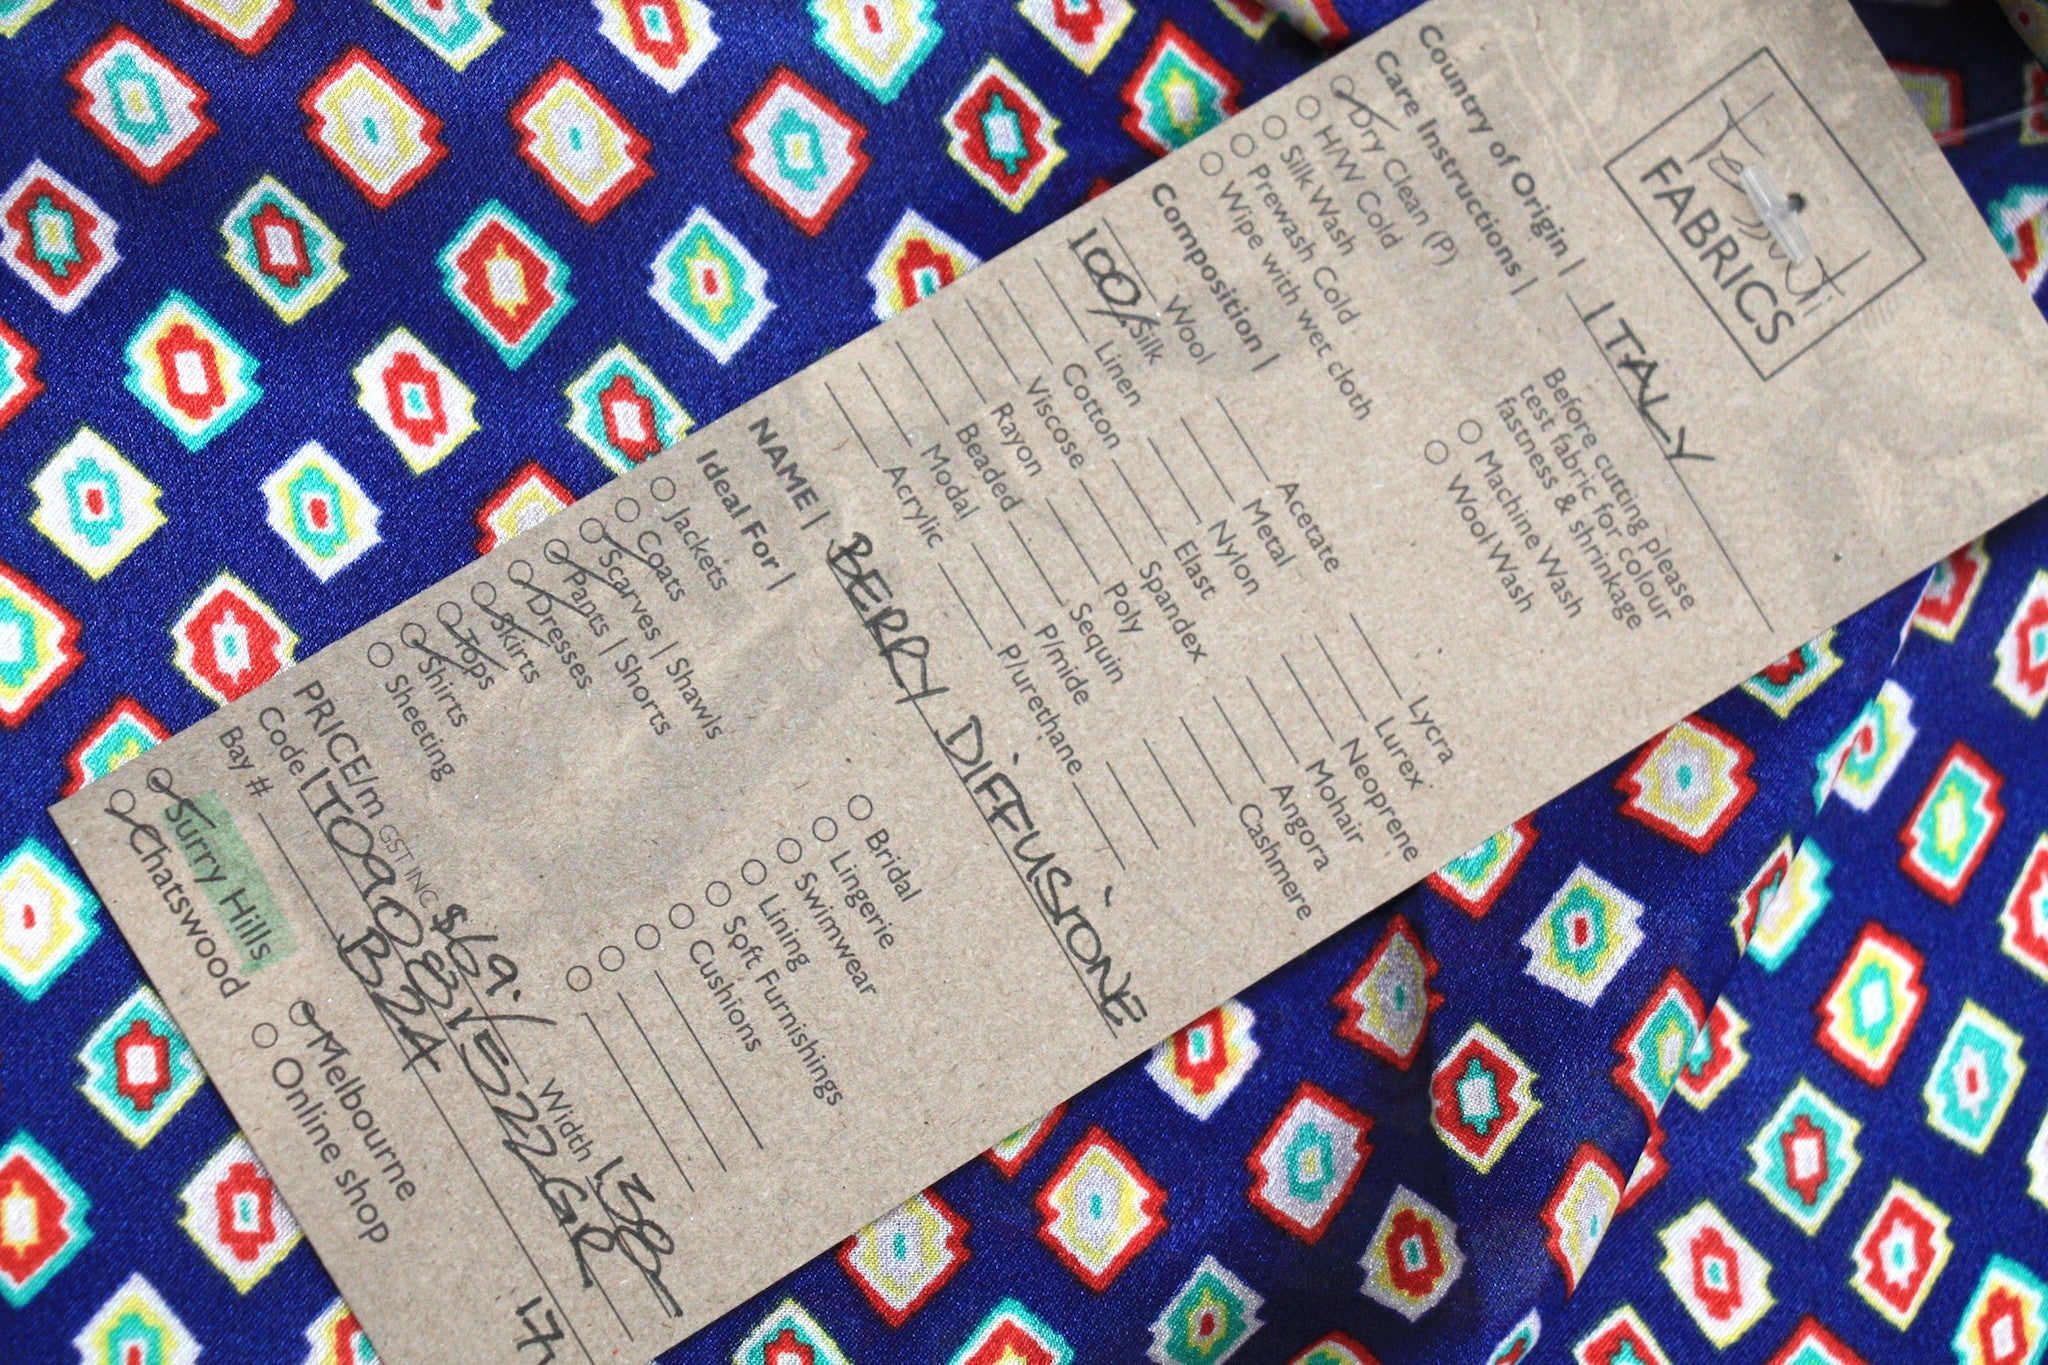 Tessuti
FABRICS
Country of Origin | ITALY
Care Instructions |
Dry Clean (P)
H/W Cold
Silk Wash
Prewash Cold
Wipe with wet cloth
Before cutting please
test fabric for colour
fastness & shrinkage
Machine Wash
Wool Wash
Composition |
Wool
100% Silk
Linen
Cotton
Viscose
Rayon
Beaded
Modal
Acrylic
Acetate
Metal
Nylon
Elast
Spandex
Poly
Sequin
P/mide
P/urethane
Lycra
Lurex
Neoprene
Mohair
Angora
Cashmere
NAME | BERRY DIFFUSIONE
Ideal For |
Jackets
Coats
Scarves | Shawls
Pants | Shorts
Dresses
Skirts
Tops
Shirts
Sheeting
Bridal
Lingerie
Swimwear
Lining
Soft Furnishings
Cushions
PRICE/m GST INC $69.- Width 138-
Code ITO9081522GR
Bay # B24
Surry Hills
Chatswood
Melbourne
Online shop